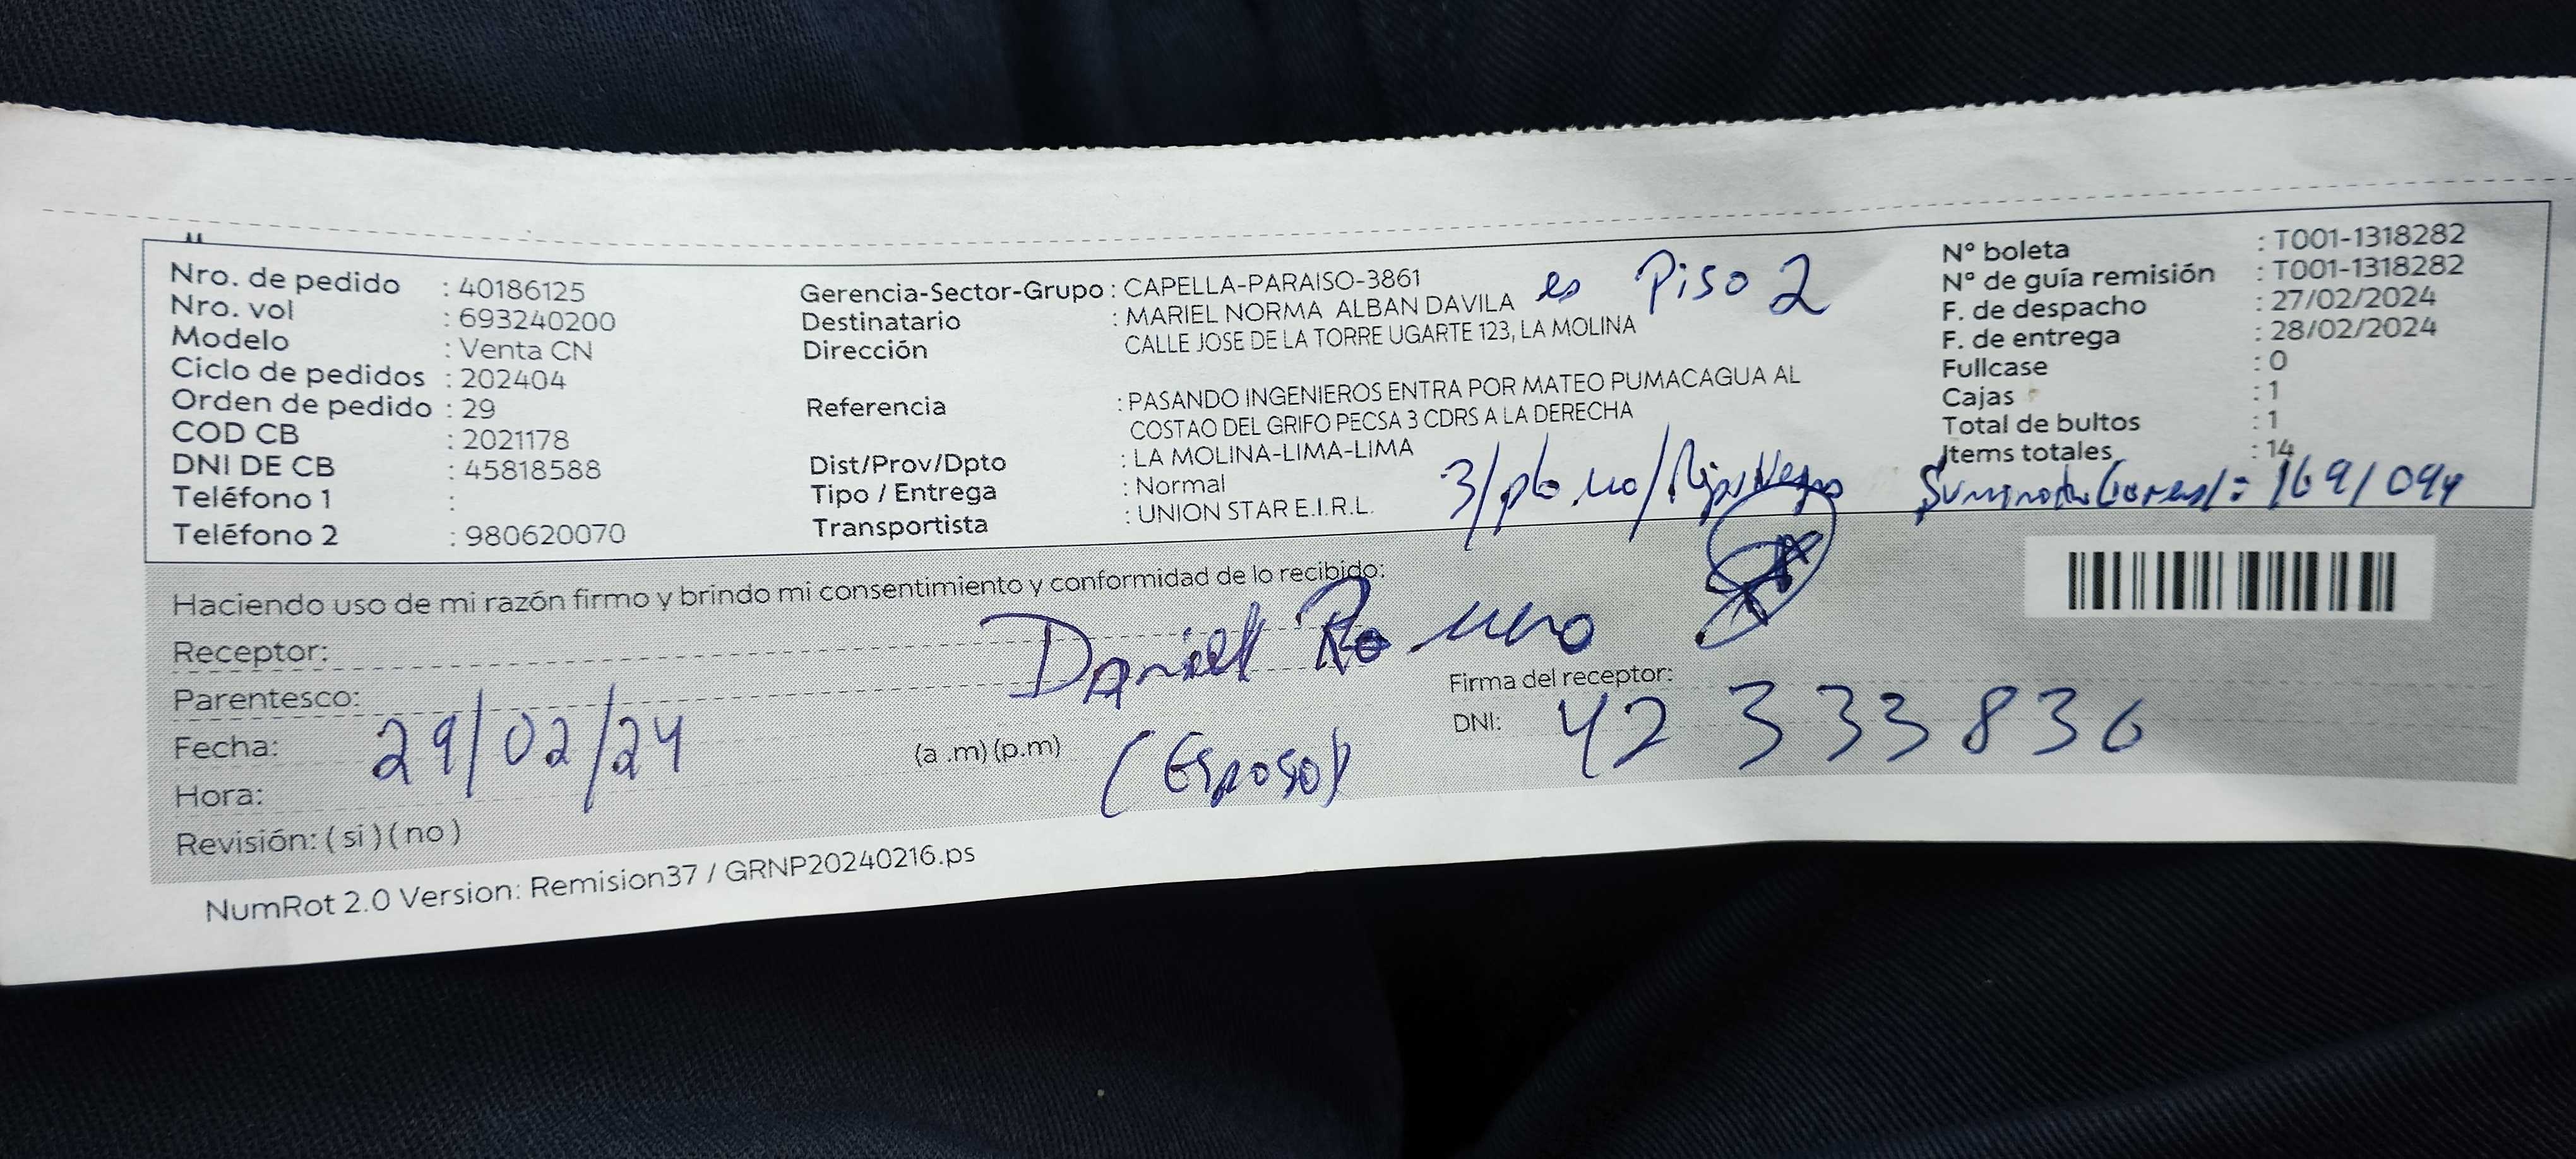 Nro. de pedido : 40186125
Nro. vol : 693240200
Modelo : Venta CN
Ciclo de pedidos : 202404
Orden de pedido : 29
COD CB : 2021178
DNI DE CB : 45818588
Teléfono 1 :
Teléfono 2 : 980620070
Gerencia-Sector-Grupo : CAPELLA-PARAISO-3861
Destinatario : MARIEL NORMA ALBAN DAVILA
es Piso 2
Dirección CALLE JOSE DE LA TORRE UGARTE 123, LA MOLINA
Referencia : PASANDO INGENIEROS ENTRA POR MATEO PUMACAGUA AL
COSTAO DEL GRIFO PECSA 3 CDRS A LA DERECHA
Dist/Prov/Dpto : LA MOLINA-LIMA-LIMA
Tipo / Entrega : Normal
Transportista : UNION STAR E.I.R.L.
N° boleta : T001-1318282
N° de guía remisión : T001-1318282
F. de despacho : 27/02/2024
F. de entrega : 28/02/2024
Fullcase : 0
Cajas : 1
Total de bultos : 1
Items totales : 14
1691094
Haciendo uso de mi razón firmo y brindo mi consentimiento y conformidad de lo recibido:
Receptor:
Daniel
Firma del receptor:
Parentesco:
(Esposo)
DNI: 42333836
Fecha: 29/02/24
Hora: (a .m) (p.m)
Revisión: ( si ) ( no )
NumRot 2.0 Version: Remision37 / GRNP20240216.ps